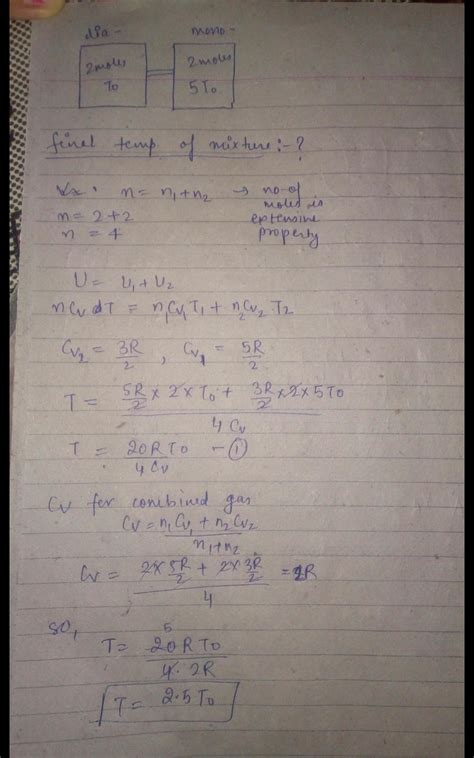 dia - mono -
2 moles 2 moles
T0 5T0
final temp of mixture :- ?
n = n1 + n2 → no. of
moles is
n = 2 + 2 extensive
n = 4 property
U = U1 + U2
nCv dT = n1Cv1T1 + n2Cv2T2
Cv2 = 3R/2 , Cv1 = 5R/2
T = (5R/2 × 2 × T0 + 3R/2 × 2 × 5T0) / 4Cv
T = 20RT0 / 4Cv - ①
Cv for combined gas
Cv = (n1Cv1 + n2Cv2) / (n1 + n2)
Cv = (2 × 5R/2 + 2 × 3R/2) / 4 = 2R
so,
5
T = 20RT0 / 4.2R
T = 2.5T0